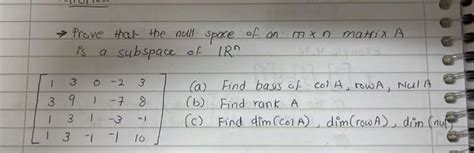 → Prove that the null space of an m x n matrix A
is a subspace of IRⁿ
1 3 0 -2 3
3 9 1 -7 8
1 3 1 -3 -1
1 3 -1 -1 10
(a) Find basis of col A, row A, Nul A
(b) Find rank A
(c) Find dim(col A), dim(row A), dim (nul